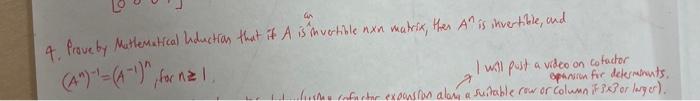 [0 0 0 1]
an
4. Prove by Mathematical Induction that if A is invertible nxn matrix, then Aⁿ is invertible, and
(Aⁿ)⁻¹=(A⁻¹)ⁿ, for n≥1.
I will post a video on cofactor
expansion for determinants.
using cofactor expansion along a suitable row or column if 3x3 or larger).